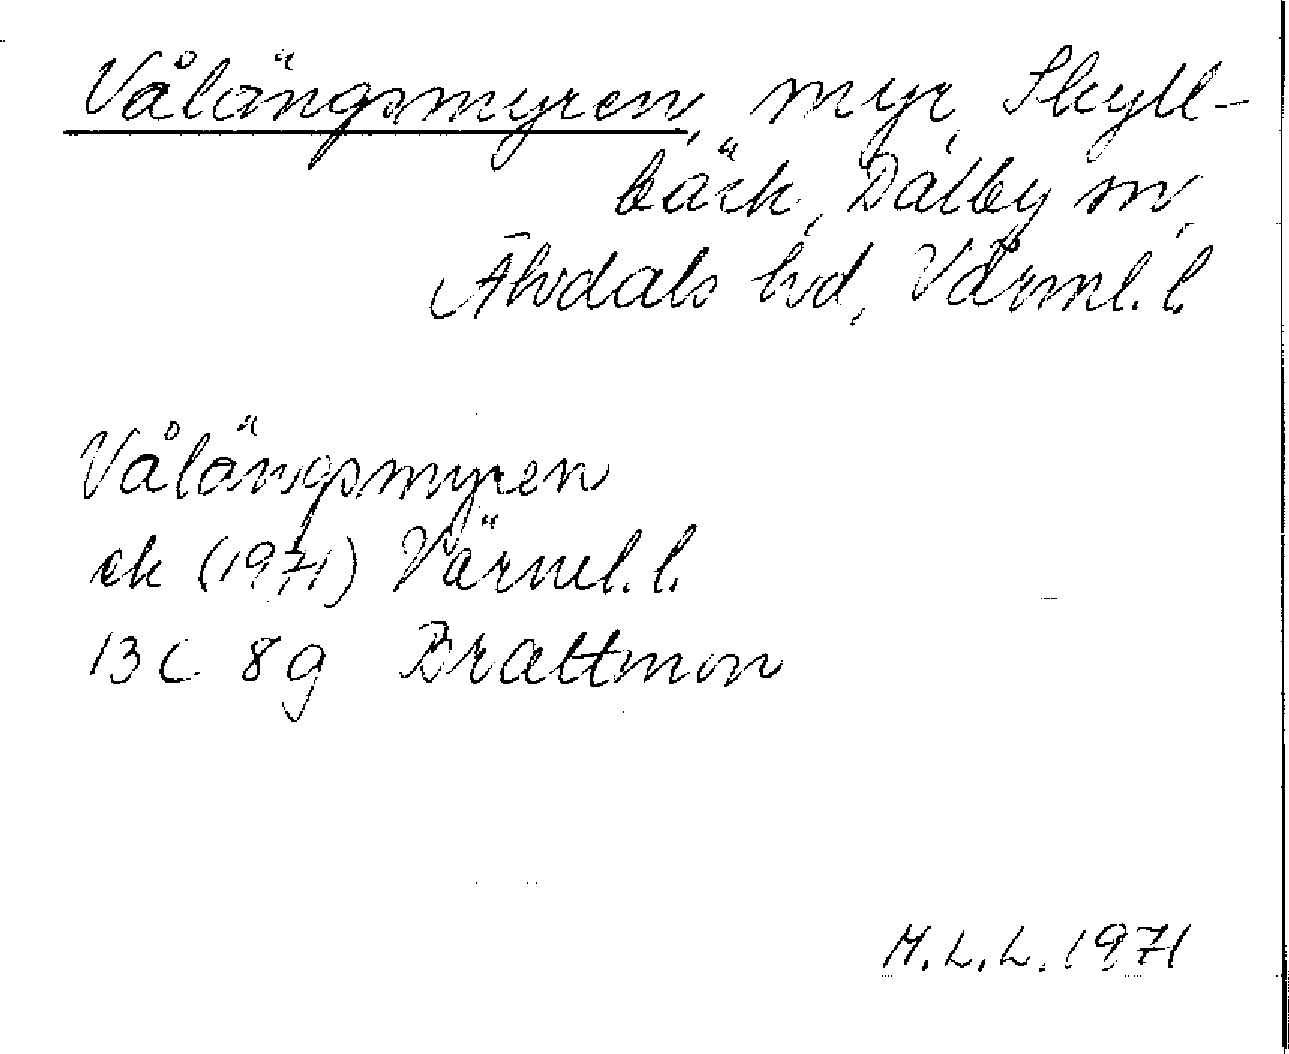 Vålängsmyren, myr, Skyll-
bäck, Dalby sn,
Älvdals hd, Värml. l.
Vålängsmyren
ek (1971) Värml. l.
13C 8g Brattmon
M.L.L. 1971